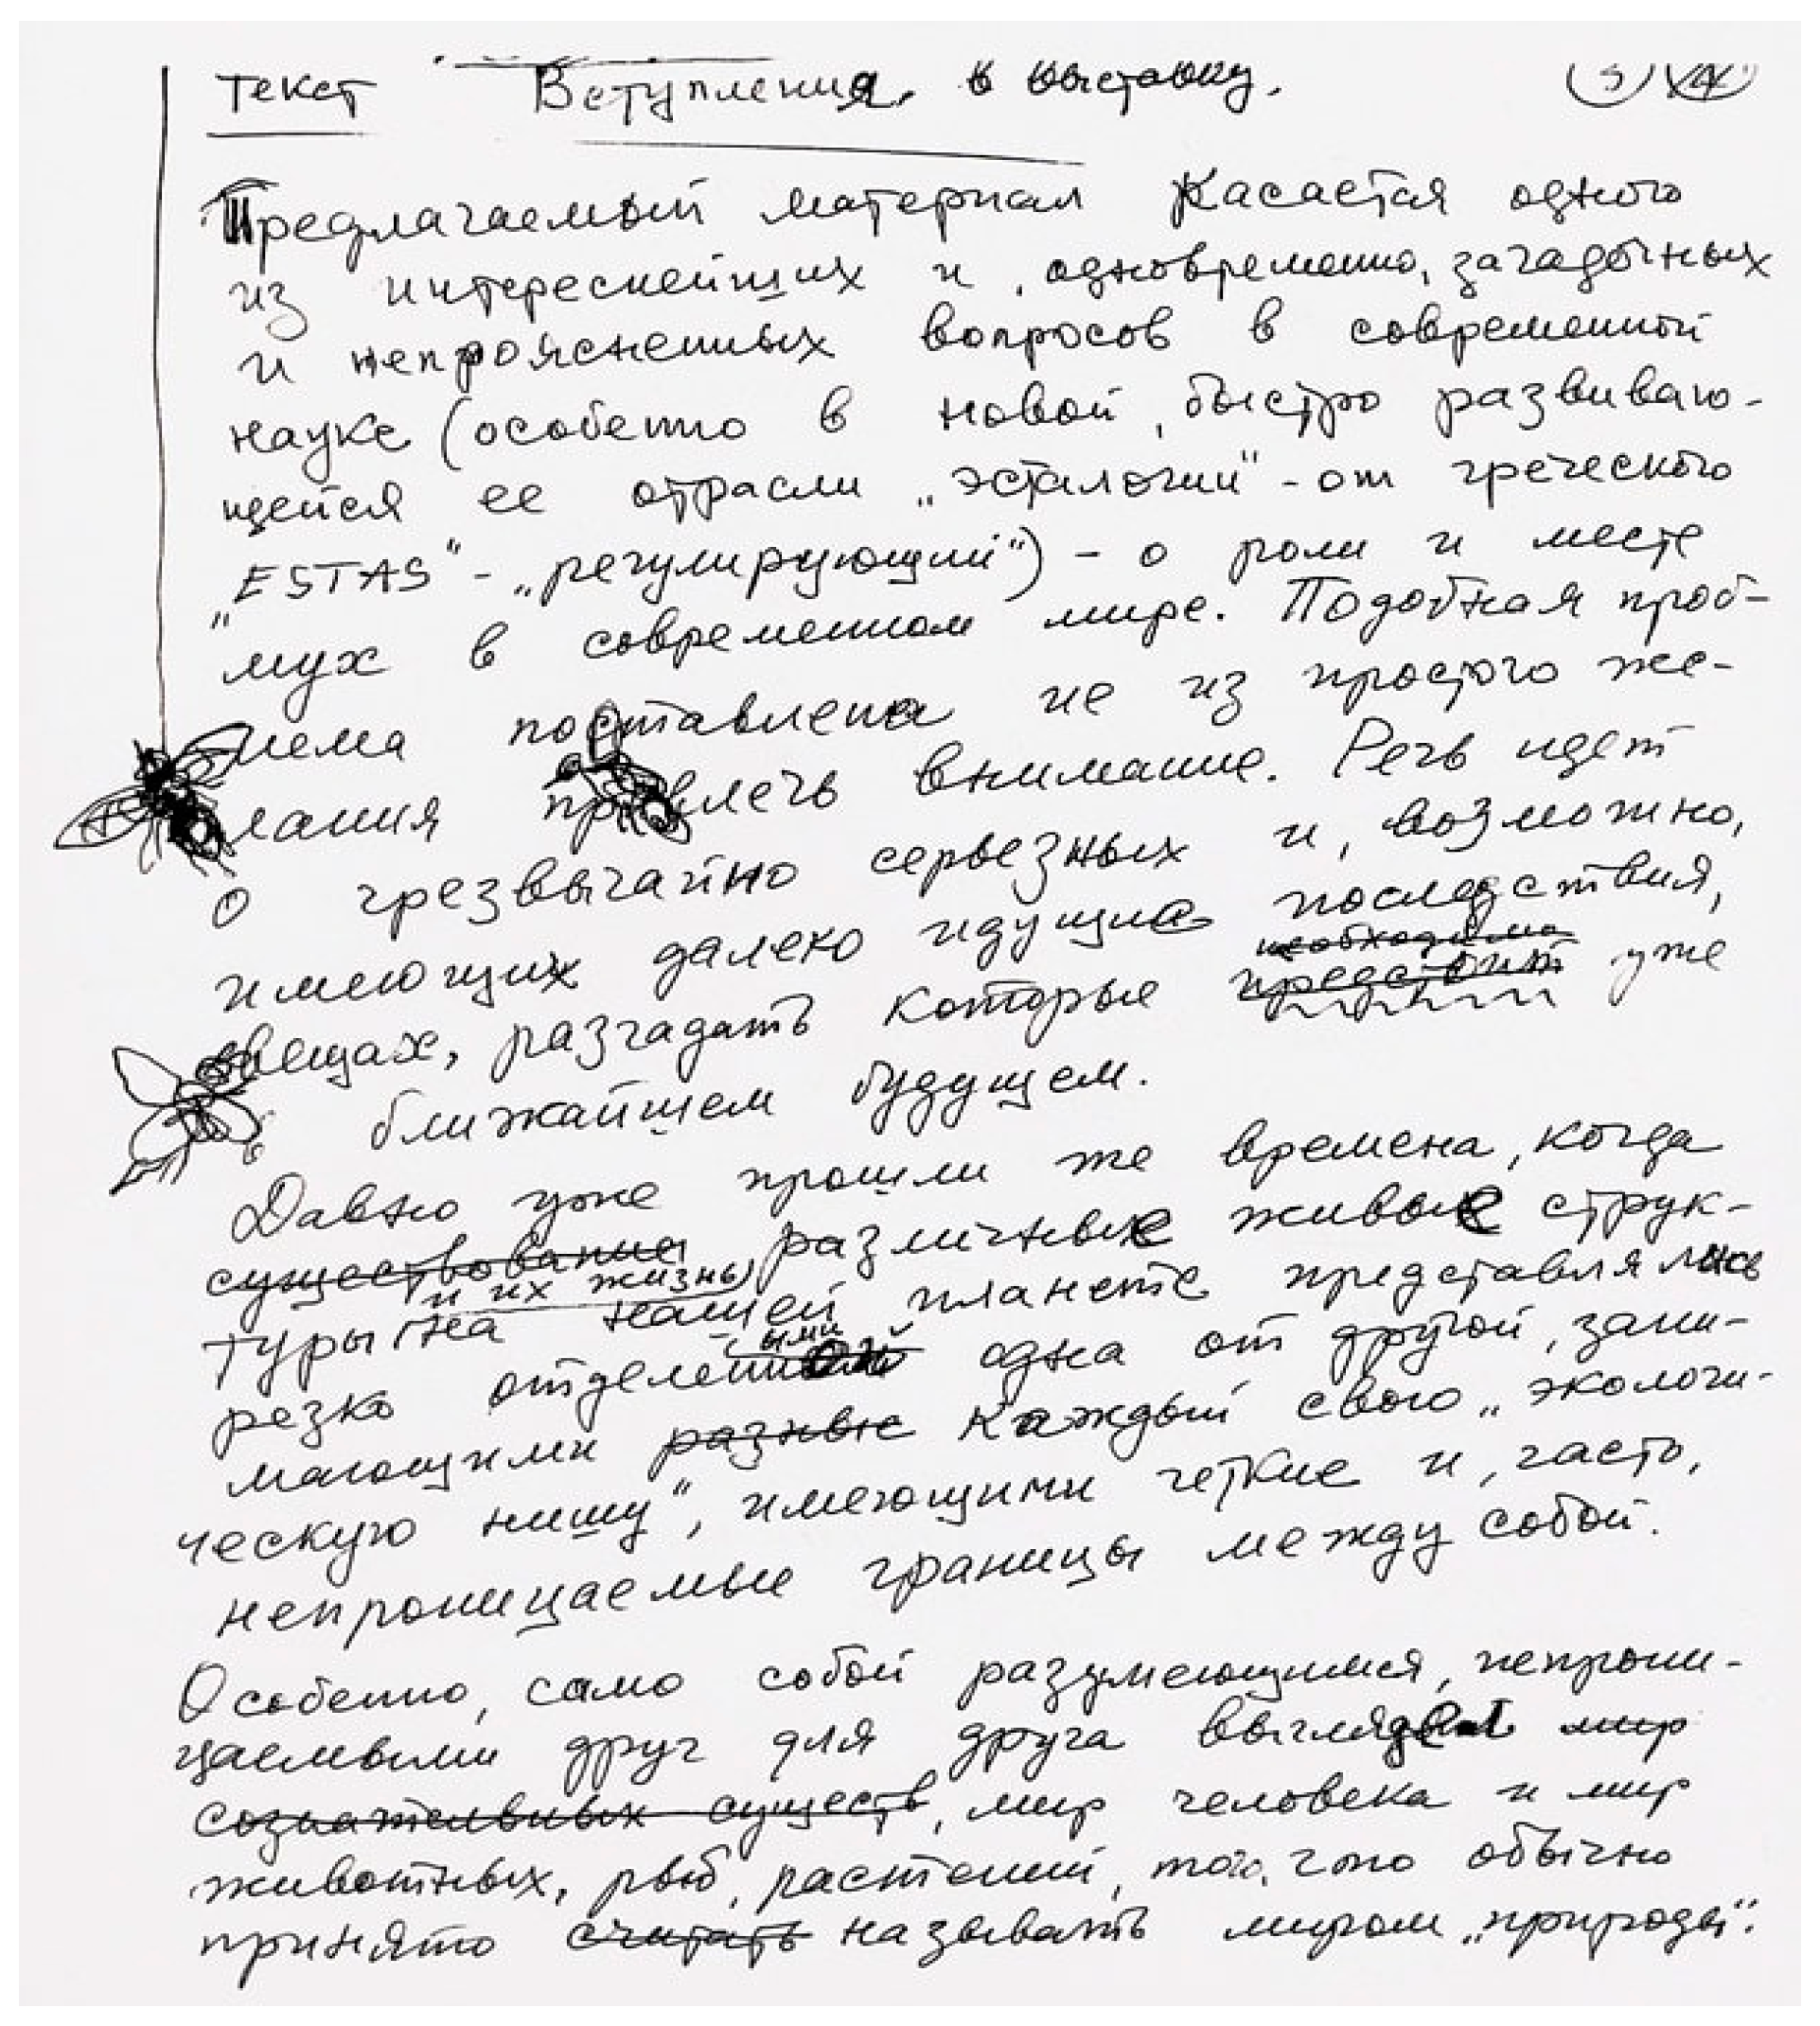 Текст Вступления в выставку.
Предлагаемый материал касается одного
из интереснейших и, одновременно, загадочных
и непроясненных вопросов в современной
науке (особенно в новой, быстро развиваю-
щейся ее отрасли „эсталогии“ - от греческого
„ESTAS“ - „регулирующий“) - о роли и месте
мух в современном мире. Подобная проб-
лема поставлена не из простого же-
лания привлечь внимание. Речь идет
о чрезвычайно серьезных и, возможно,
имеющих далеко идущие последствия,
вещах, разгадать которые необходимо
предстоит уже
в ближайшем будущем.
Давно уже прошли же времена, когда
существование различные живые струк-
туры и их жизнь на нашей планете представлялись
резко отделенными одна от другой, зани-
мающими разные каждый свою „экологи-
ческую нишу“, имеющими четкие и, часто,
непроницаемые границы между собой.
Особенно, само собой разумеющимся, непрони-
цаемыми друг для друга выглядел мир
сознательных существ, мир человека и мир
животных, рыб, растений, того, что обычно
принято считать называть миром „природы“.